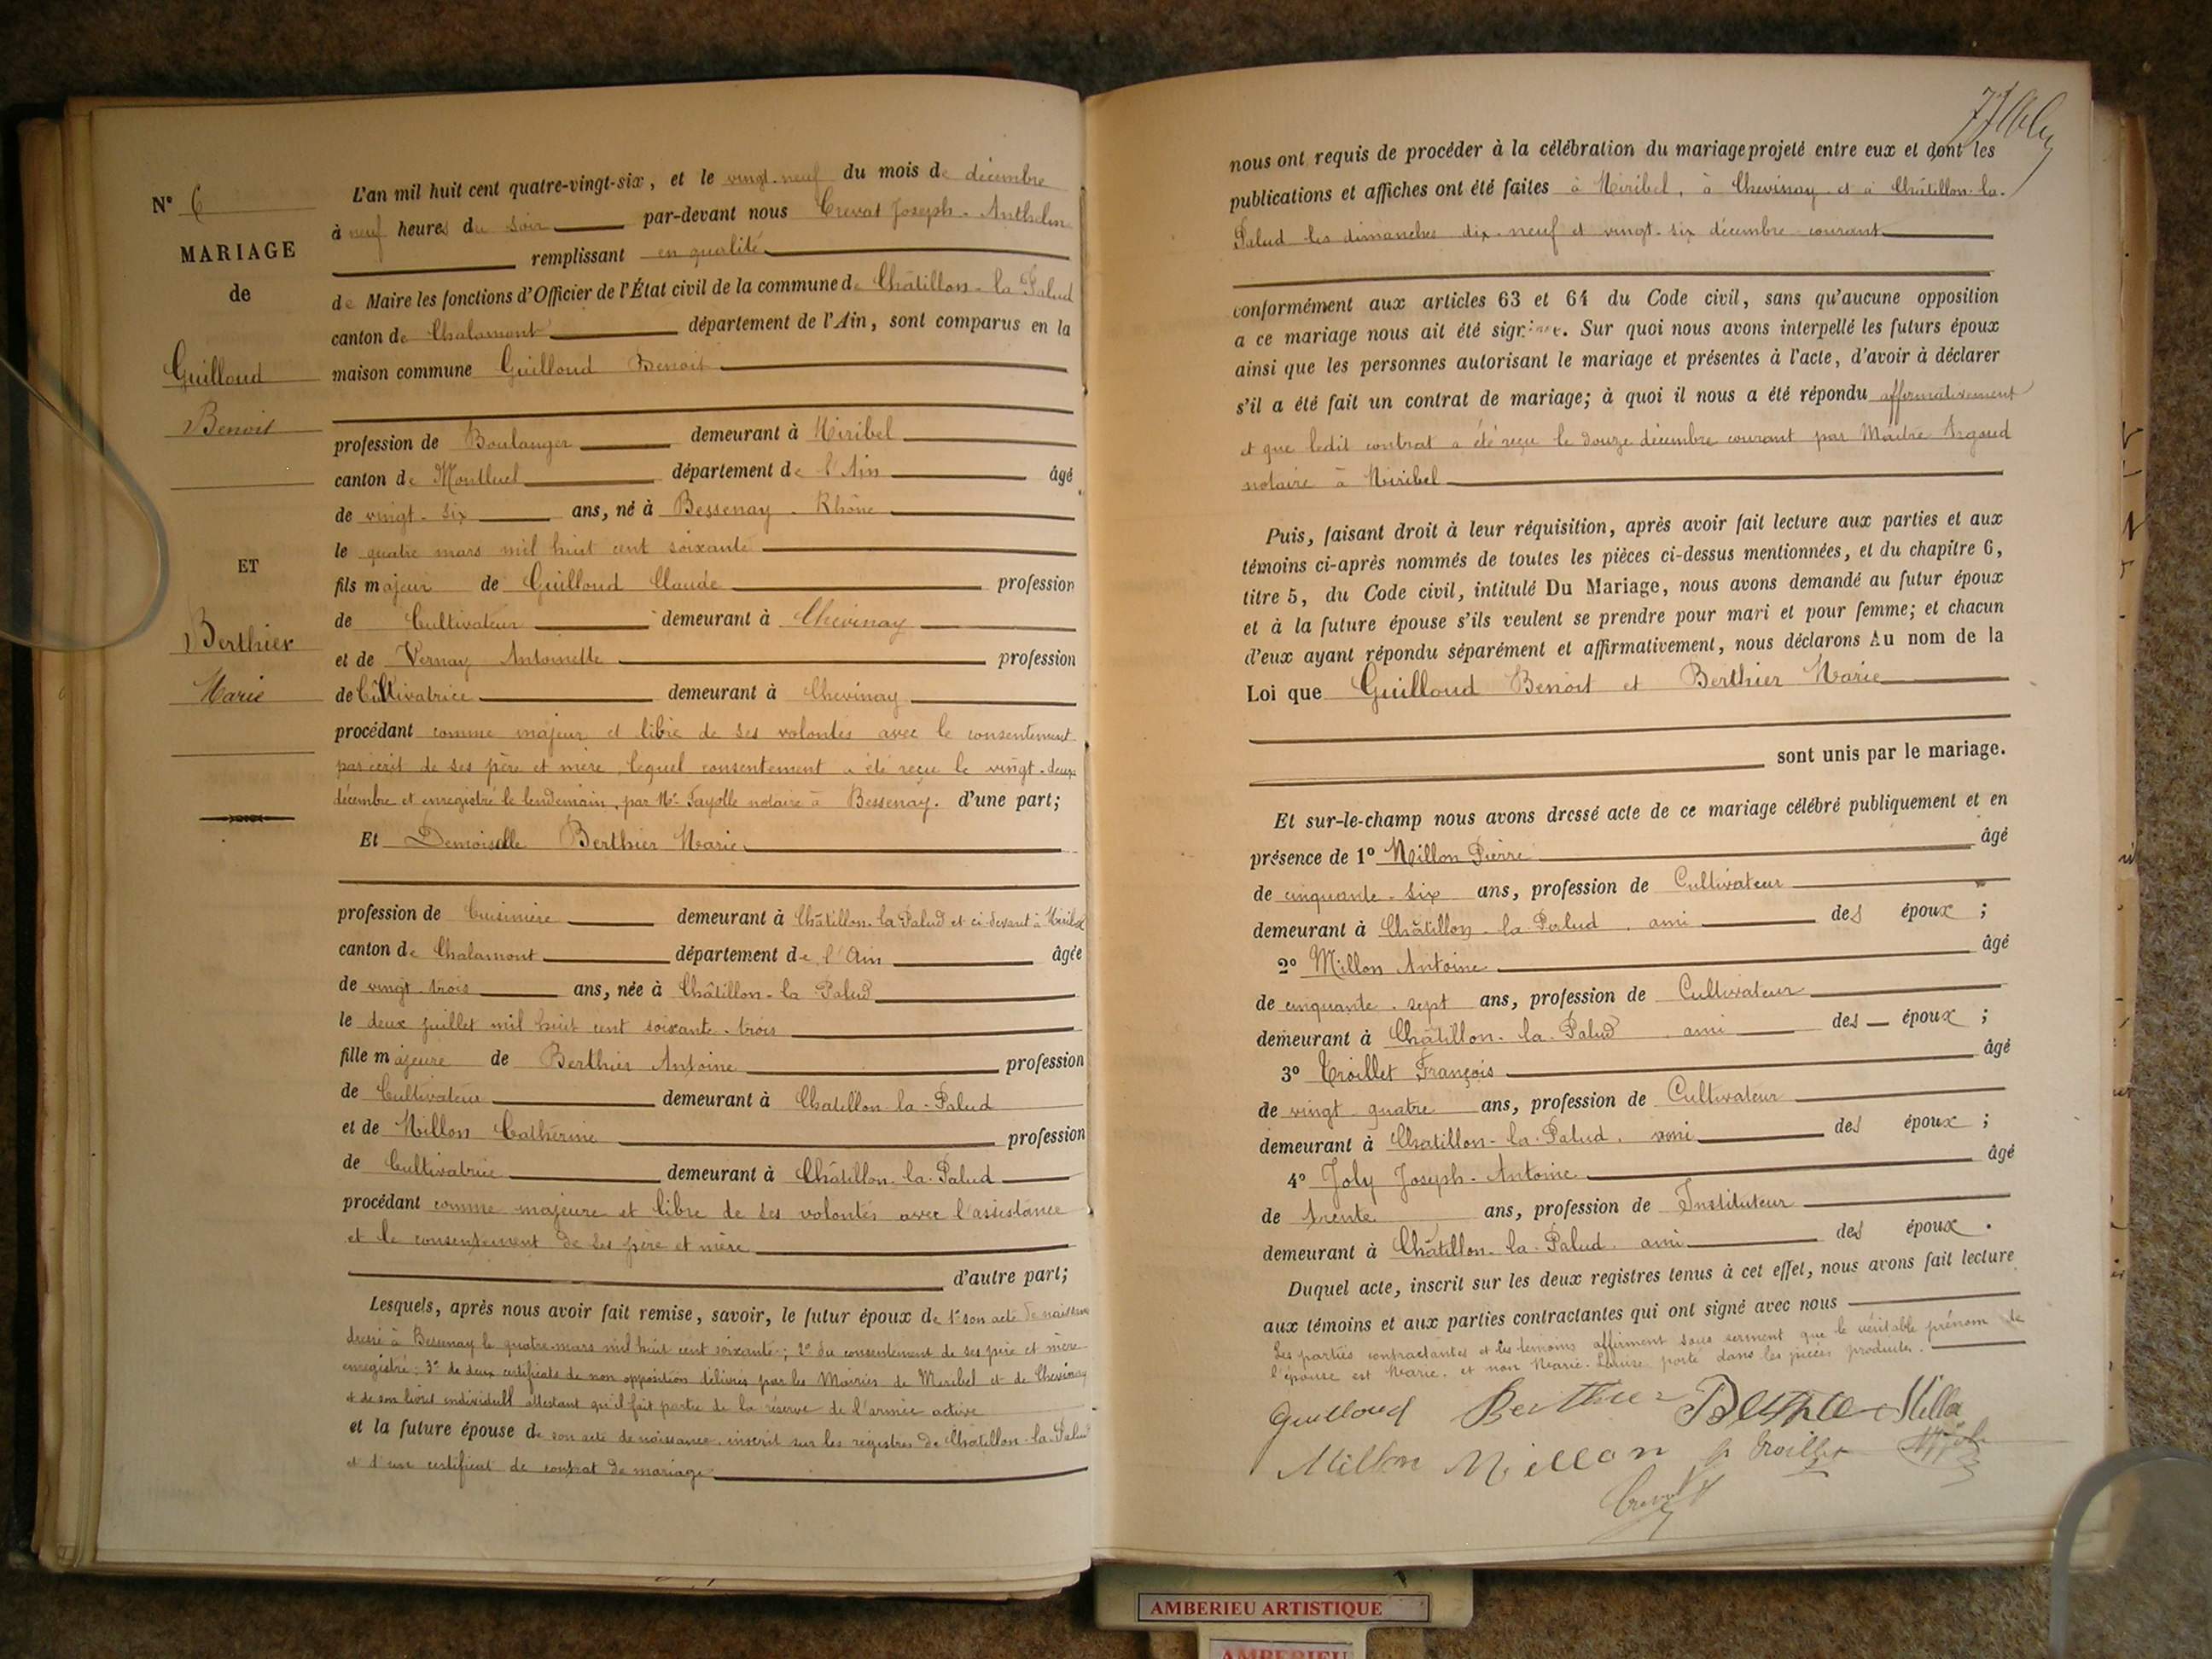 N° 6
MARIAGE
de
Guilloud
Benoit
ET
Berthier
Marie
L'an mil huit cent quatre-vingt-six, et le vingt-neuf du mois de décembre
à neuf heures du soir par-devant nous Crevat Joseph-Anthelm
remplissant en qualité
de Maire les fonctions d'Officier de l'État civil de la commune de Châtillon-la Palud
canton de Chalamont département de l'Ain, sont comparus en la
maison commune Guilloud Benoit
profession de Boulanger demeurant à Miribel
canton de Montluel département de l'Ain âgé
de vingt-six ans, né à Bessenay - Rhône
le quatre mars mil huit cent soixante
fils majeur de Guilloud Claude profession
de Cultivateur demeurant à Chevinay
et de Vernay Antoinette profession
de Cultivatrice demeurant à Chevinay
procédant comme majeur et libre de ses volontés avec le consentement
par écrit de ses père et mère, lequel consentement a été reçu le vingt-deux
décembre et enregistré le lendemain, par Me Fayolle notaire à Bessenay. d'une part;
Et Demoiselle Berthier Marie
profession de Cuisinière demeurant à Châtillon-la Palud et ci-devant à Miribel
canton de Chalamont département de l'Ain âgée
de vingt-trois ans, née à Châtillon-la Palud
le deux juillet mil huit cent soixante-trois
fille majeure de Berthier Antoine profession
de Cultivateur demeurant à Chatillon-la-Palud
et de Millon Catherine profession
de Cultivatrice demeurant à Châtillon-la-Palud
procédant comme majeure et libre de ses volontés avec l'assistance
et le consentement de ses père et mère
d'autre part;
Lesquels, après nous avoir fait remise, savoir, le futur époux de 1° son acte de naissance
dressé à Bessenay le quatre mars mil huit cent soixante; 2° du consentement de ses père et mère
enregistré; 3° de deux certificats de non opposition délivrés par les Mairies de Miribel et de Chevinay
et de son livret individuel attestant qu'il fait partie de la réserve de l'armée active
et la future épouse de son acte de naissance inscrit sur les registres de Chatillon-la-Palud
et d'un certificat de contrat de mariage
77
nous ont requis de procéder à la célébration du mariage projeté entre eux et dont les
publications et affiches ont été faites à Miribel, à Chevinay et à Châtillon-la-
Palud les dimanches dix-neuf et vingt-six décembre courant
conformément aux articles 63 et 64 du Code civil, sans qu'aucune opposition
a ce mariage nous ait été signifiée. Sur quoi nous avons interpellé les futurs époux
ainsi que les personnes autorisant le mariage et présentes à l'acte, d'avoir à déclarer
s'il a été fait un contrat de mariage; à quoi il nous a été répondu affirmativement
et que ledit contrat a été reçu le douze décembre courant par Maître Argoud
notaire à Miribel
Puis, faisant droit à leur réquisition, après avoir fait lecture aux parties et aux
témoins ci-après nommés de toutes les pièces ci-dessus mentionnées, et du chapitre 6,
titre 5, du Code civil, intitulé Du Mariage, nous avons demandé au futur époux
et à la future épouse s'ils veulent se prendre pour mari et pour femme; et chacun
d'eux ayant répondu séparément et affirmativement, nous déclarons Au nom de la
Loi que Guilloud Benoit et Berthier Marie
sont unis par le mariage.
Et sur-le-champ nous avons dressé acte de ce mariage célébré publiquement et en
présence de 1° Millon Pierre âgé
de cinquante-six ans, profession de Cultivateur
demeurant à Châtillon-la-Palud, ami des époux ;
2° Millon Antoine âgé
de cinquante-sept ans, profession de Cultivateur
demeurant à Châtillon-la-Palud, ami des époux ;
3° Troillet François âgé
de vingt-quatre ans, profession de Cultivateur
demeurant à Chatillon-la-Palud, ami des époux ;
4° Joly Joseph-Antoine âgé
de trente ans, profession de Instituteur
demeurant à Châtillon-la-Palud, ami des époux .
Duquel acte, inscrit sur les deux registres tenus à cet effet, nous avons fait lecture
aux témoins et aux parties contractantes qui ont signé avec nous
Les parties contractantes et les témoins affirment sous serment que le véritable prénom de
l'épouse est Marie, et non Marie-Louise porté dans les pièces produites.
Guilloud Berthier Berthier Millon
Millon Millon Troillet Joly
Crevat
AMBERIEU ARTISTIQUE
AMBERIEU